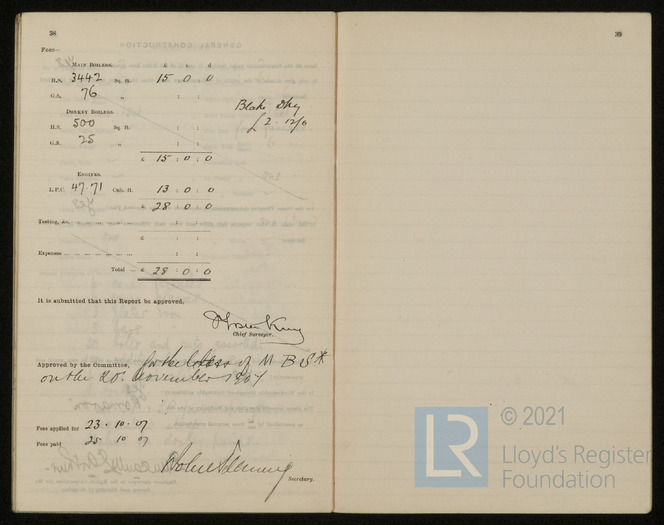 38
Fees—
MAIN BOILERS. £ s. d
H.S. 3442 Sq. ft. 15 : 0 : 0
G.S. 76 „ : :
DONKEY BOILERS.
H.S. 500 Sq. ft. : :
G.S. 25 „ : :
£ 15 : 0 : 0
ENGINES.
L.P.C. 47.71 Cub. ft. 13 : 0 : 0
£ 28 : 0 : 0
Testing, &c. : :
£ : :
Expenses : :
Total £ 28 : 0 : 0
Blake Dky
£2 . 12/6
It is submitted that this Report be approved,
Chief Surveyor.
Approved by the Committee, for the Class of M B S *
on the 20th November 1907
Fees applied for 23 . 10 . 07
Fees paid 25 . 10 . 07
Secretary.
39
LR
© 2021
Lloyd's Register
Foundation